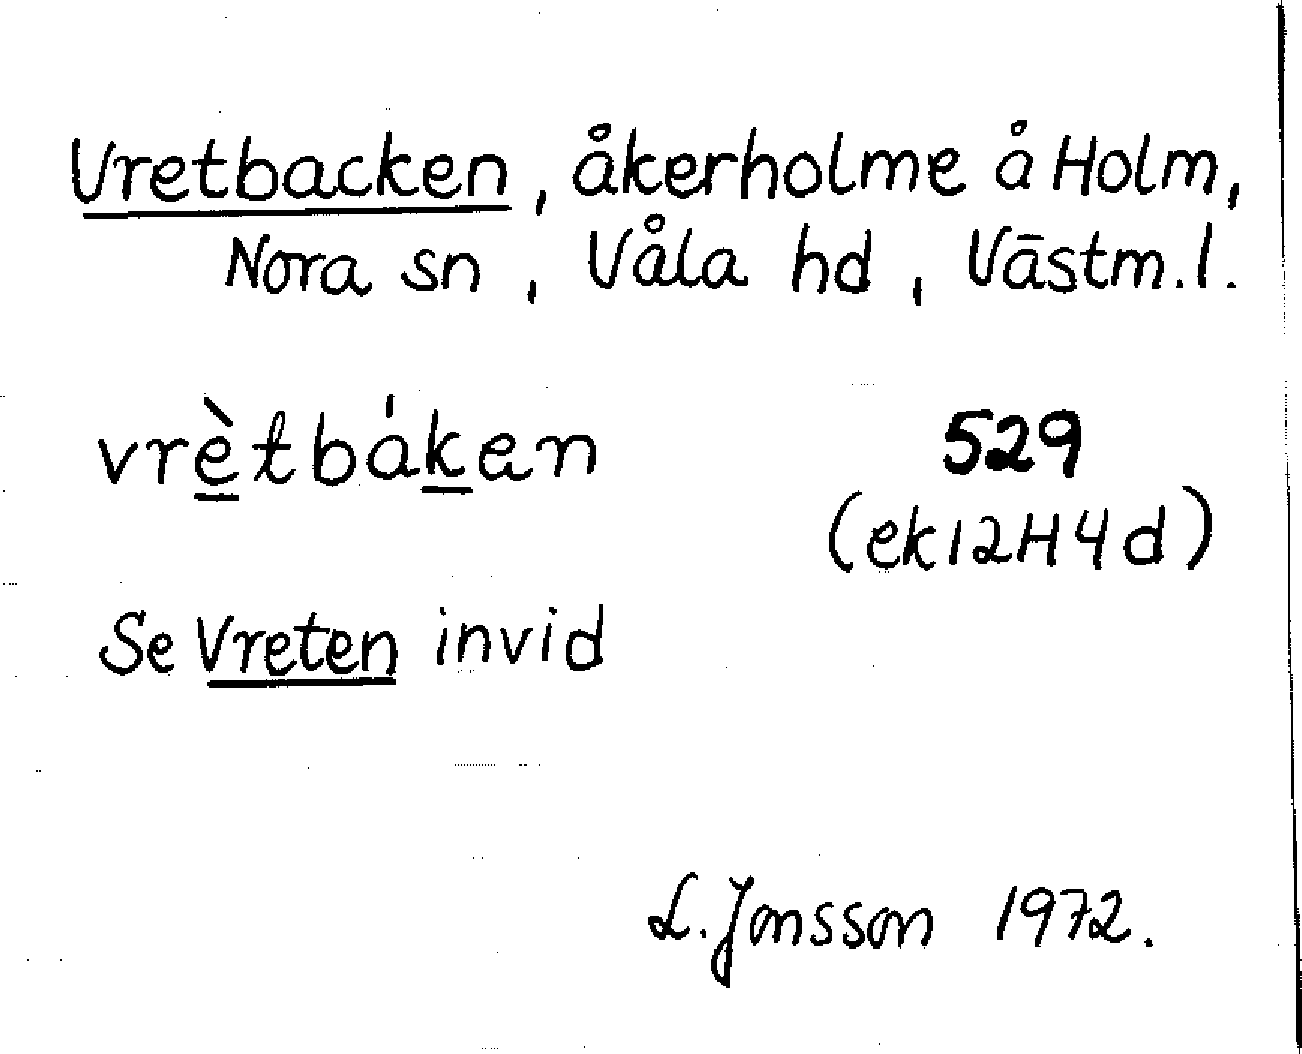 Vretbacken, åkerholme å Holm,
Nora sn, Våla hd, Västm.l.
vrètbáken
529
(ek12H4d)
Se Vreten invid
L. Jonsson 1972.